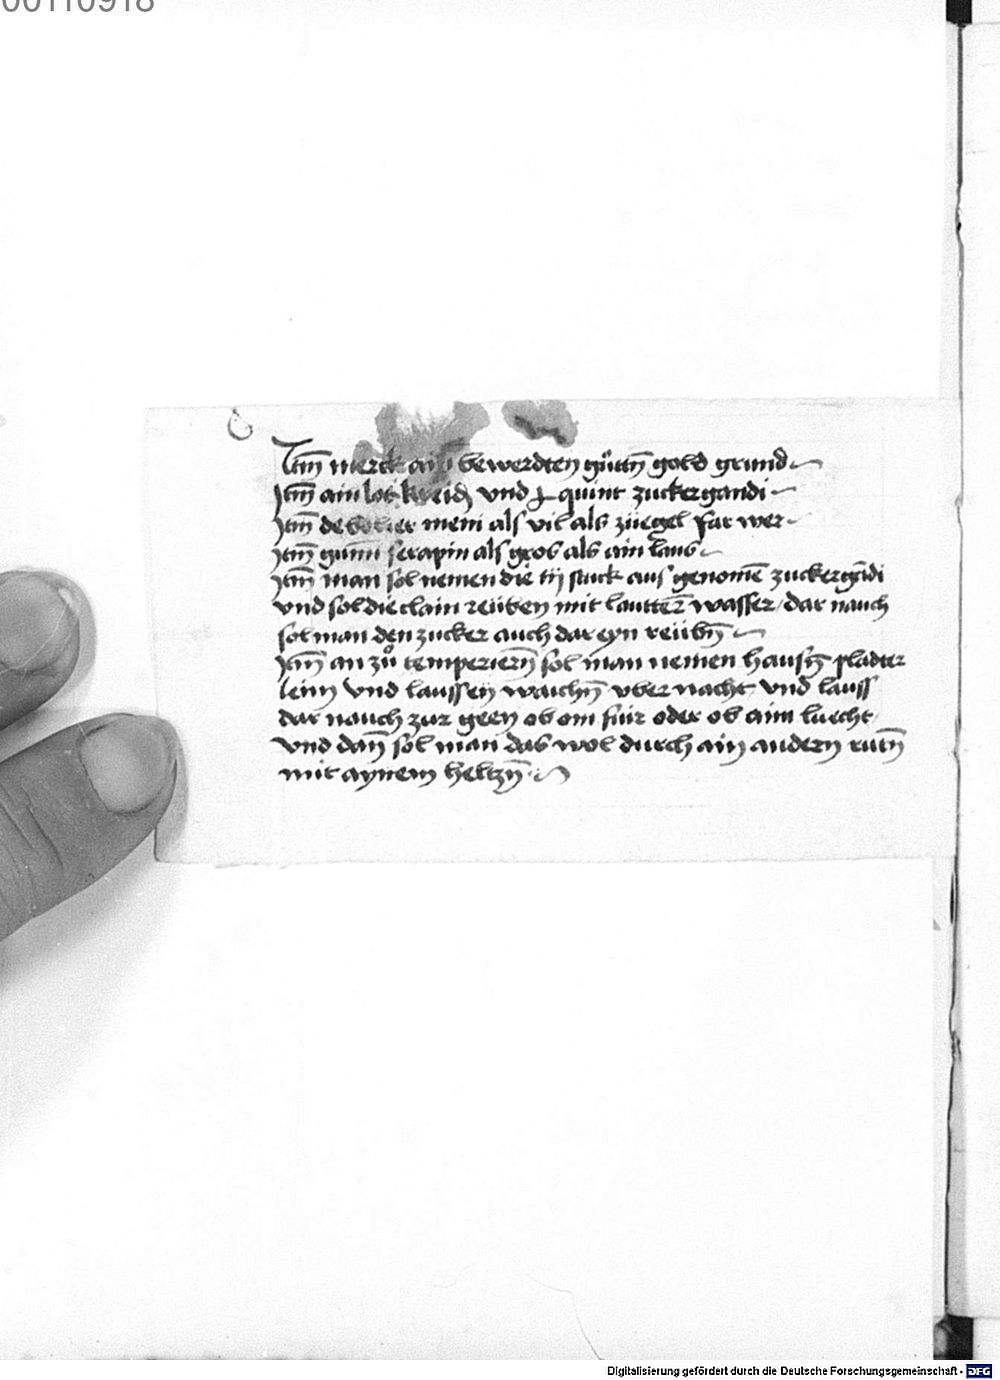 00110918
Itm̄ merck ain bewerdten gůtn̄ gold grund
Itm̄ ain lot kreidn̄ vnd j quint zuckergandi
Itm̄ de meni als vil als züegel far wer
Itm̄ gum̄i serapin als gros als ain laus
Itm̄ man sol nemen die iij stuck aus genomē zuckergādi
vnd sol die clain reüben mit lautterm̄ wasser / dar nauch
sol man den zucker auch dar eyn reübn̄
Itm̄ an zů temperiern̄ sol man nemen hausn̄ pladter
leim vnd laussen waichn̄ vber nacht vnd lauss
dar nauch zur geen ob om fuir oder ob aim liecht /
vnd dan̄ sol man das wol durch ain andern rurn̄
mit aynem heltzn̄
Digitalisierung gefördert durch die Deutsche Forschungsgemeinschaft - DFG